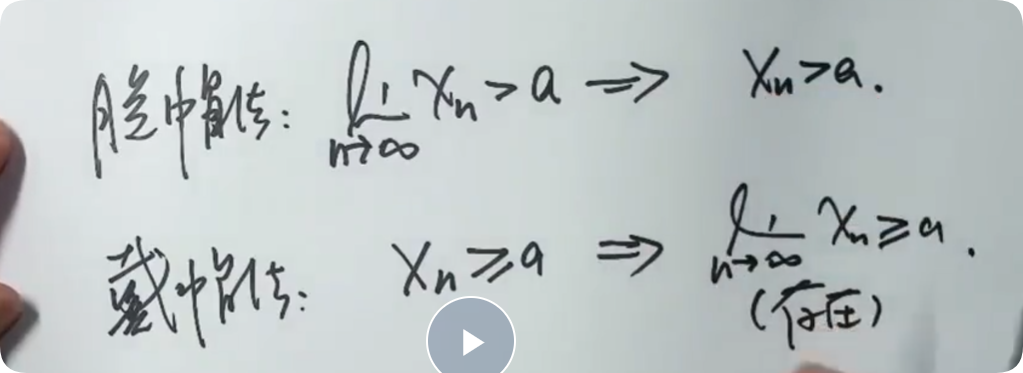 脱帽法: lim n→∞ Xn > a ⇒ Xn > a.
戴帽法: Xn ≥ a ⇒ lim n→∞ Xn ≥ a.
(存在)